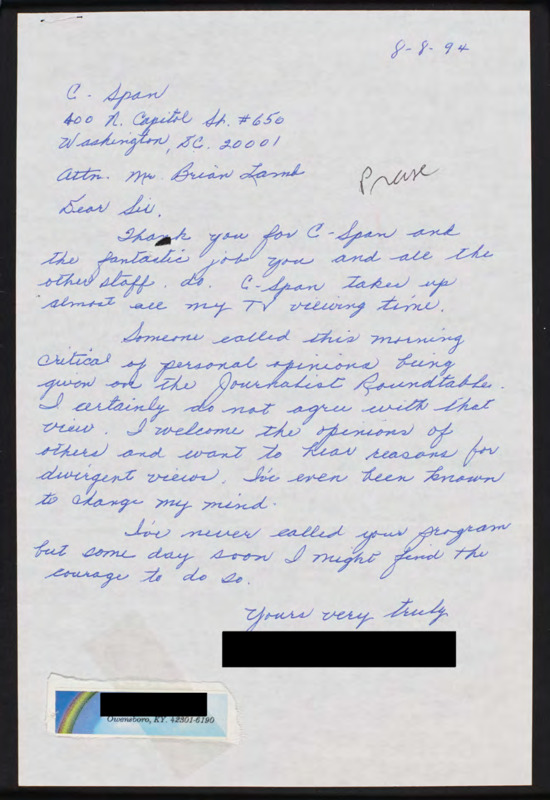 8-8-94
C-Span
400 N. Capitol St. #650
Washington, DC. 20001
Attn. Mr. Brian Lamb
Praise
Dear Sir,
Thank you for C-Span and
the fantastic job you and all the
other staff do. C-Span takes up
almost all my TV viewing time.
Someone called this morning
critical of personal opinions being
given on the Journalist Roundtable.
I certainly do not agree with that
view. I welcome the opinions of
others and want to hear reasons for
divergent views. I've even been known
to change my mind.
I've never called your program
but some day soon I might find the
courage to do so.
Yours very truly
Owensboro, KY. 42301-6190